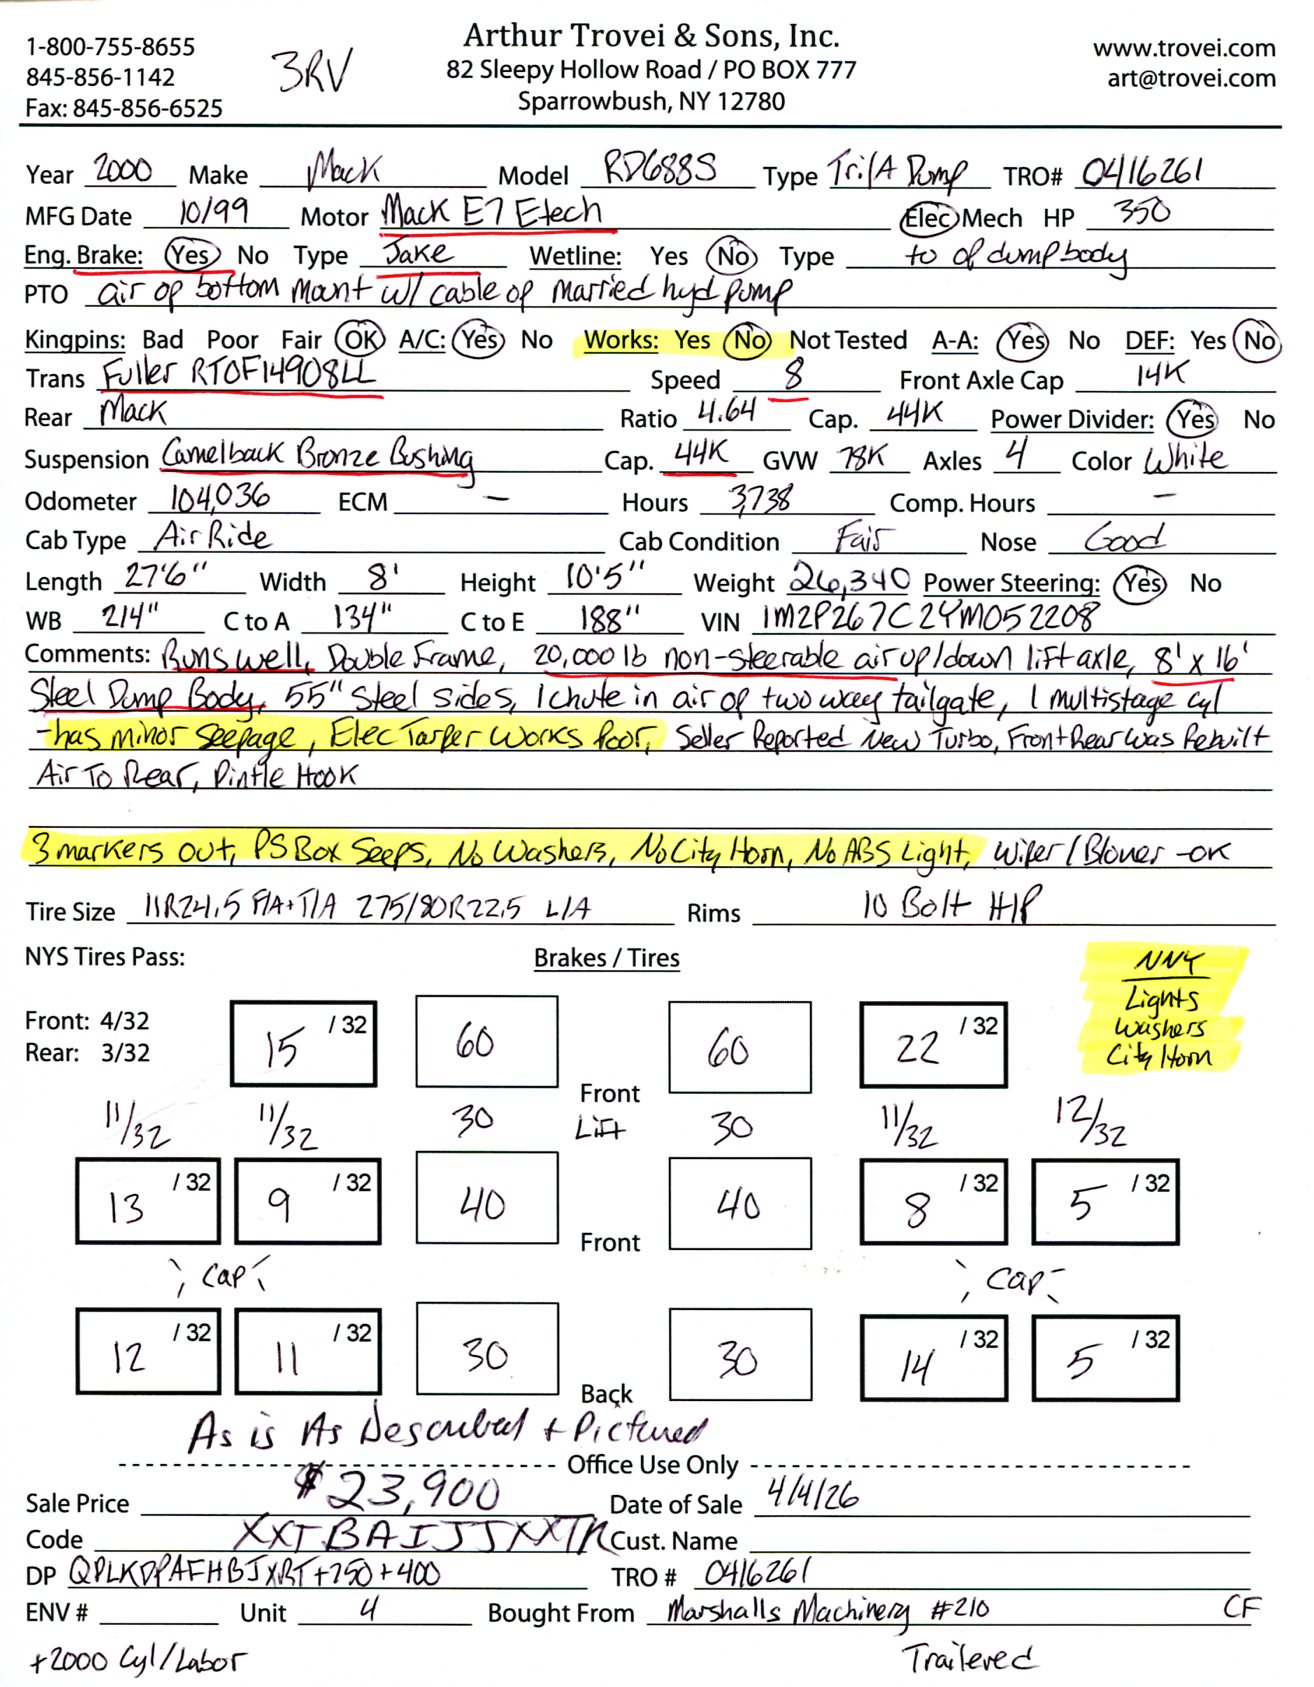 Arthur Trovei & Sons, Inc.
1-800-755-8655 3RV 82 Sleepy Hollow Road / PO BOX 777 www.trovei.com
845-856-1142 Sparrowbush, NY 12780 art@trovei.com
Fax: 845-856-6525
Year 2000 Make Mack Model RD688S Type Tri/A Dump TRO# 0416261
MFG Date 10/99 Motor Mack E7 Etech Elec Mech HP 350
Eng. Brake: Yes No Type Jake Wetline: Yes No Type to op dump body
PTO air op bottom mount w/ cable op married hyd pump
Kingpins: Bad Poor Fair OK A/C: Yes No Works: Yes No Not Tested A-A: Yes No DEF: Yes No
Trans Fuller RTOF14908LL Speed 8 Front Axle Cap 14K
Rear Mack Ratio 4.64 Cap. 44K Power Divider: Yes No
Suspension Camelback Bronze Bushing Cap. 44K GVW 78K Axles 4 Color White
Odometer 104,036 ECM – Hours 3,738 Comp. Hours –
Cab Type Air Ride Cab Condition Fair Nose Good
Length 27'6" Width 8' Height 10'5" Weight 26,340 Power Steering: Yes No
WB 214" C to A 134" C to E 188" VIN 1M2P267C2YM052208
Comments: Runs well, Double Frame, 20,000 lb non-steerable air up/down lift axle, 8' x 16'
Steel Dump Body, 55" steel sides, 1 chute in air op two way tailgate, 1 multistage cyl
-has minor seepage, Elec Tarper Works Poor, Seller Reported New Turbo, Front Rear Was Rebuilt
Air To Rear, Pintle Hook
3 markers out, PS Box Seeps, No Washers, No City Horn, No ABS Light, Wiper/Blower -OK
Tire Size 11R24.5 F/A+T/A 275/80R22.5 L/A Rims 10 Bolt H/P
NYS Tires Pass: Brakes / Tires NNY
Lights
Washers
City Horn
Front: 4/32
Rear: 3/32
15 /32 60 Front 60 22 /32
11/32 11/32 30 Lift 30 11/32 12/32
13 /32 9 /32 40 Front 40 8 /32 5 /32
Cap Cap
12 /32 11 /32 30 Back 30 14 /32 5 /32
As is As Described + Pictured
Office Use Only
Sale Price $23,900 Date of Sale 4/4/26
Code XXTBAIJJXXTR Cust. Name
DP QPLKDPAFHBJXRT+750+400 TRO # 0416261
ENV # Unit 4 Bought From Marshalls Machinery #210 CF
+2000 Cyl/Labor Trailered